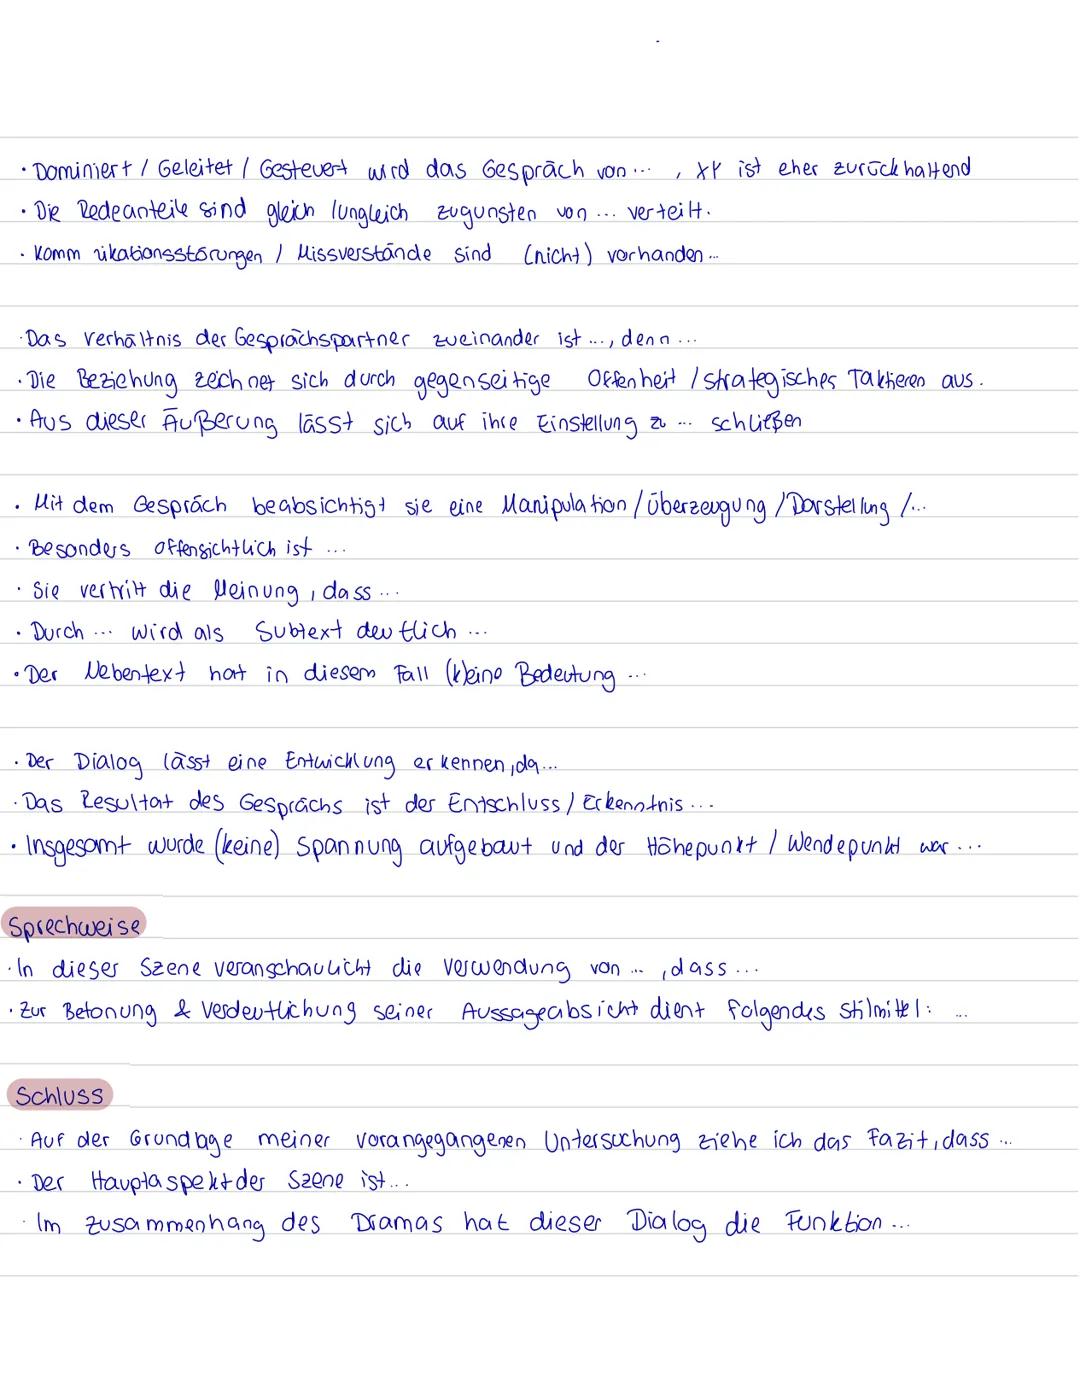 · Dominiert / Geleitet / Gesteuert wird das Gespräch von ... , XY ist eher zurückhaltend
· Die Redeanteile sind gleich / ungleich zugunsten von ... verteilt.
· Komm ukationsstörungen / Missverstände sind (nicht) vorhanden ...
· Das Verhältnis der Gesprächspartner zueinander ist ..., denn ...
· Die Beziehung zeichnet sich durch gegenseitige Offenheit / strategisches Taktieren aus.
· Aus dieser Äußerung lässt sich auf ihre Einstellung zu ... schließen
· Mit dem Gespräch beabsichtigt sie eine Manipulation / Überzeugung / Darstellung / ...
· Besonders offensichtlich ist ...
· Sie vertritt die Meinung, dass ...
· Durch ... wird als Subtext deutlich ...
· Der Nebentext hat in diesem Fall (k)eine Bedeutung ...
· Der Dialog lässt eine Entwicklung erkennen, da ...
· Das Resultat des Gesprächs ist der Entschluss / Erkenntnis ...
· Insgesamt wurde (keine) Spannung aufgebaut und der Höhepunkt / Wendepunkt war ...
Sprechweise
· In dieser Szene veranschaulicht die Verwendung von ... , dass ...
· Zur Betonung & Verdeutlichung seiner Aussageabsicht dient folgendes Stilmittel: ...
Schluss
· Auf der Grundlage meiner vorangegangenen Untersuchung ziehe ich das Fazit, dass ...
· Der Hauptaspekt der Szene ist ...
· Im Zusammenhang des Dramas hat dieser Dialog die Funktion ...